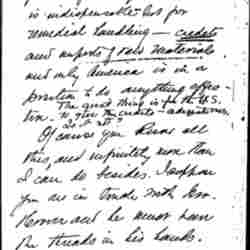 is indispensable but for
remedial handling — credits
and imports of raw materials
and only America is in a
position to do anything effec-
tive. The great thing is for the U.S.
to give the credits
Of course you know all
this, and infinitely more than
I can do besides. I suppose
you are in touch with Gov.
Hoover and he must have
the threads in his hands.